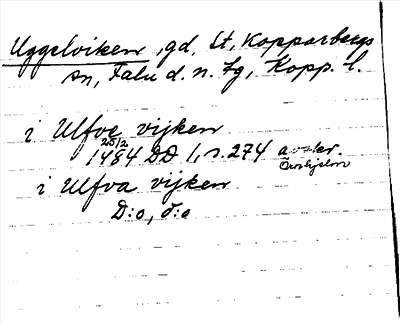 Uggelviken, gd, St. Kopparbergs
sn, Falu d. n. tg, Kopp. l.
i Ulfve vijken
25/2
1484 DD 1, s. 274 avskr.
Örnhjelm
i Ulfva vijken
D:o, d:o